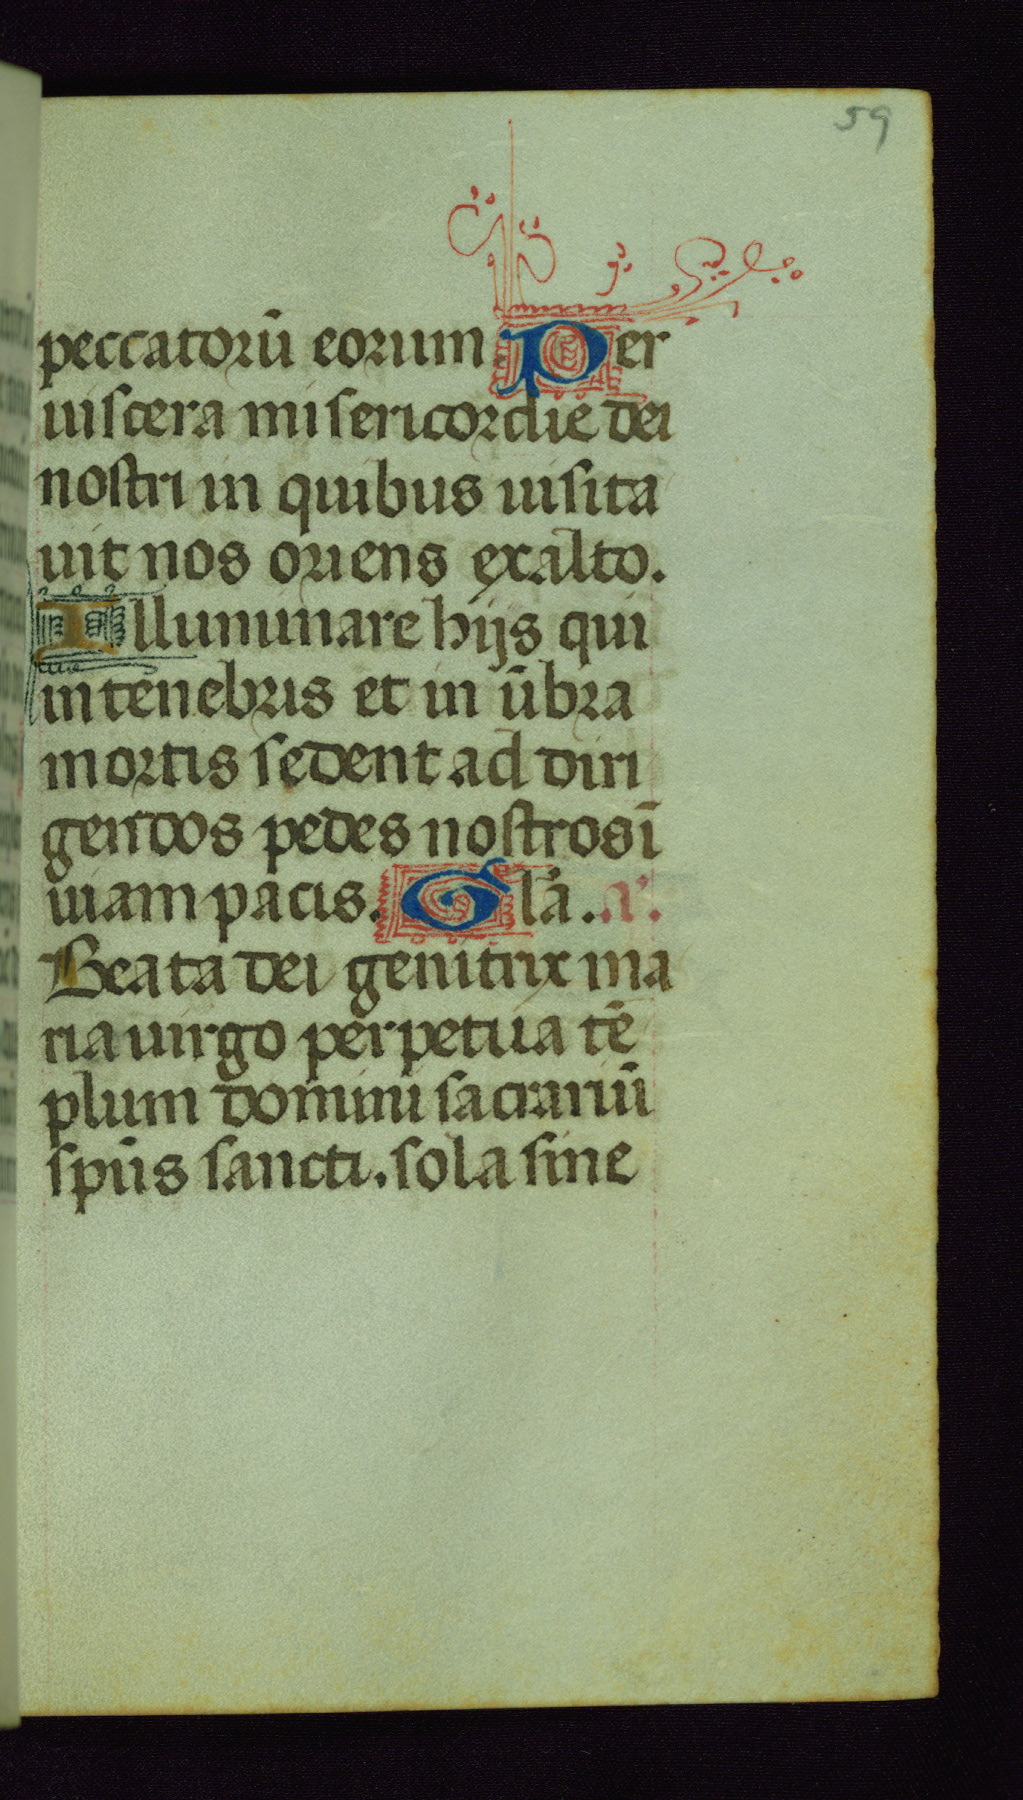 59
peccatorū eorum. Per
uiscera misericordie dei
nostri in quibus uisita
uit nos oriens exalto.
Illuminare hijs qui
in tenebris et in ūbra
mortis sedent ad diri
gendos pedes nostros ī
uiam pacis. Gl̄a. a͛.
Beata dei genitrix ma
ria uirgo perpetua tē
plum domini sacrariū
sp̄us sancti. sola sine